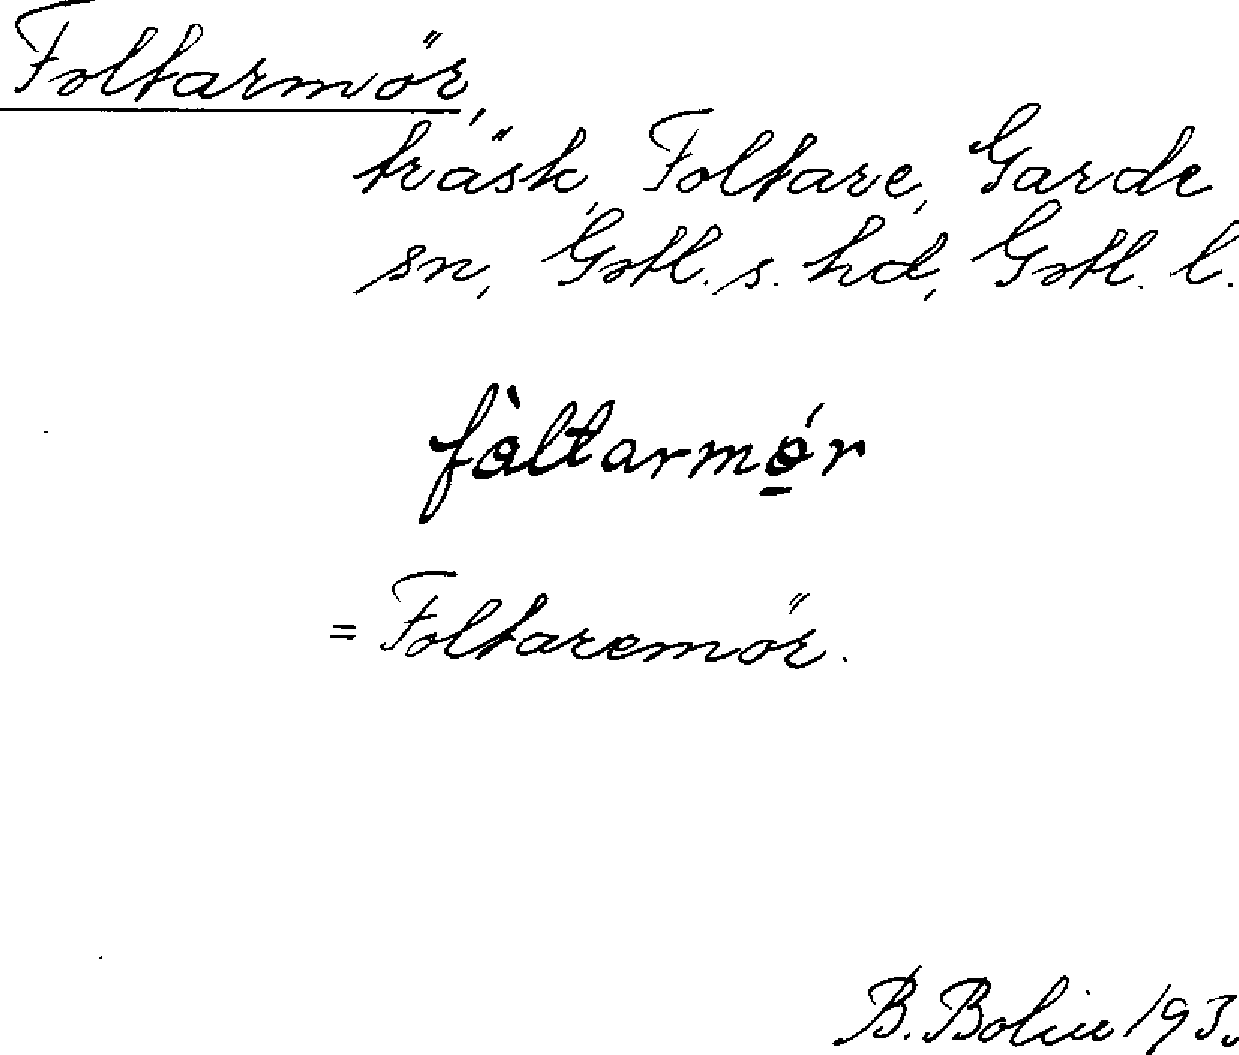 Foltarmör,
träsk, Foltare, Garde
sn, Gotl. s. hd, Gotl. l.
fòltarmǿ̱r
= Foltaremör.
B. Bolin 193